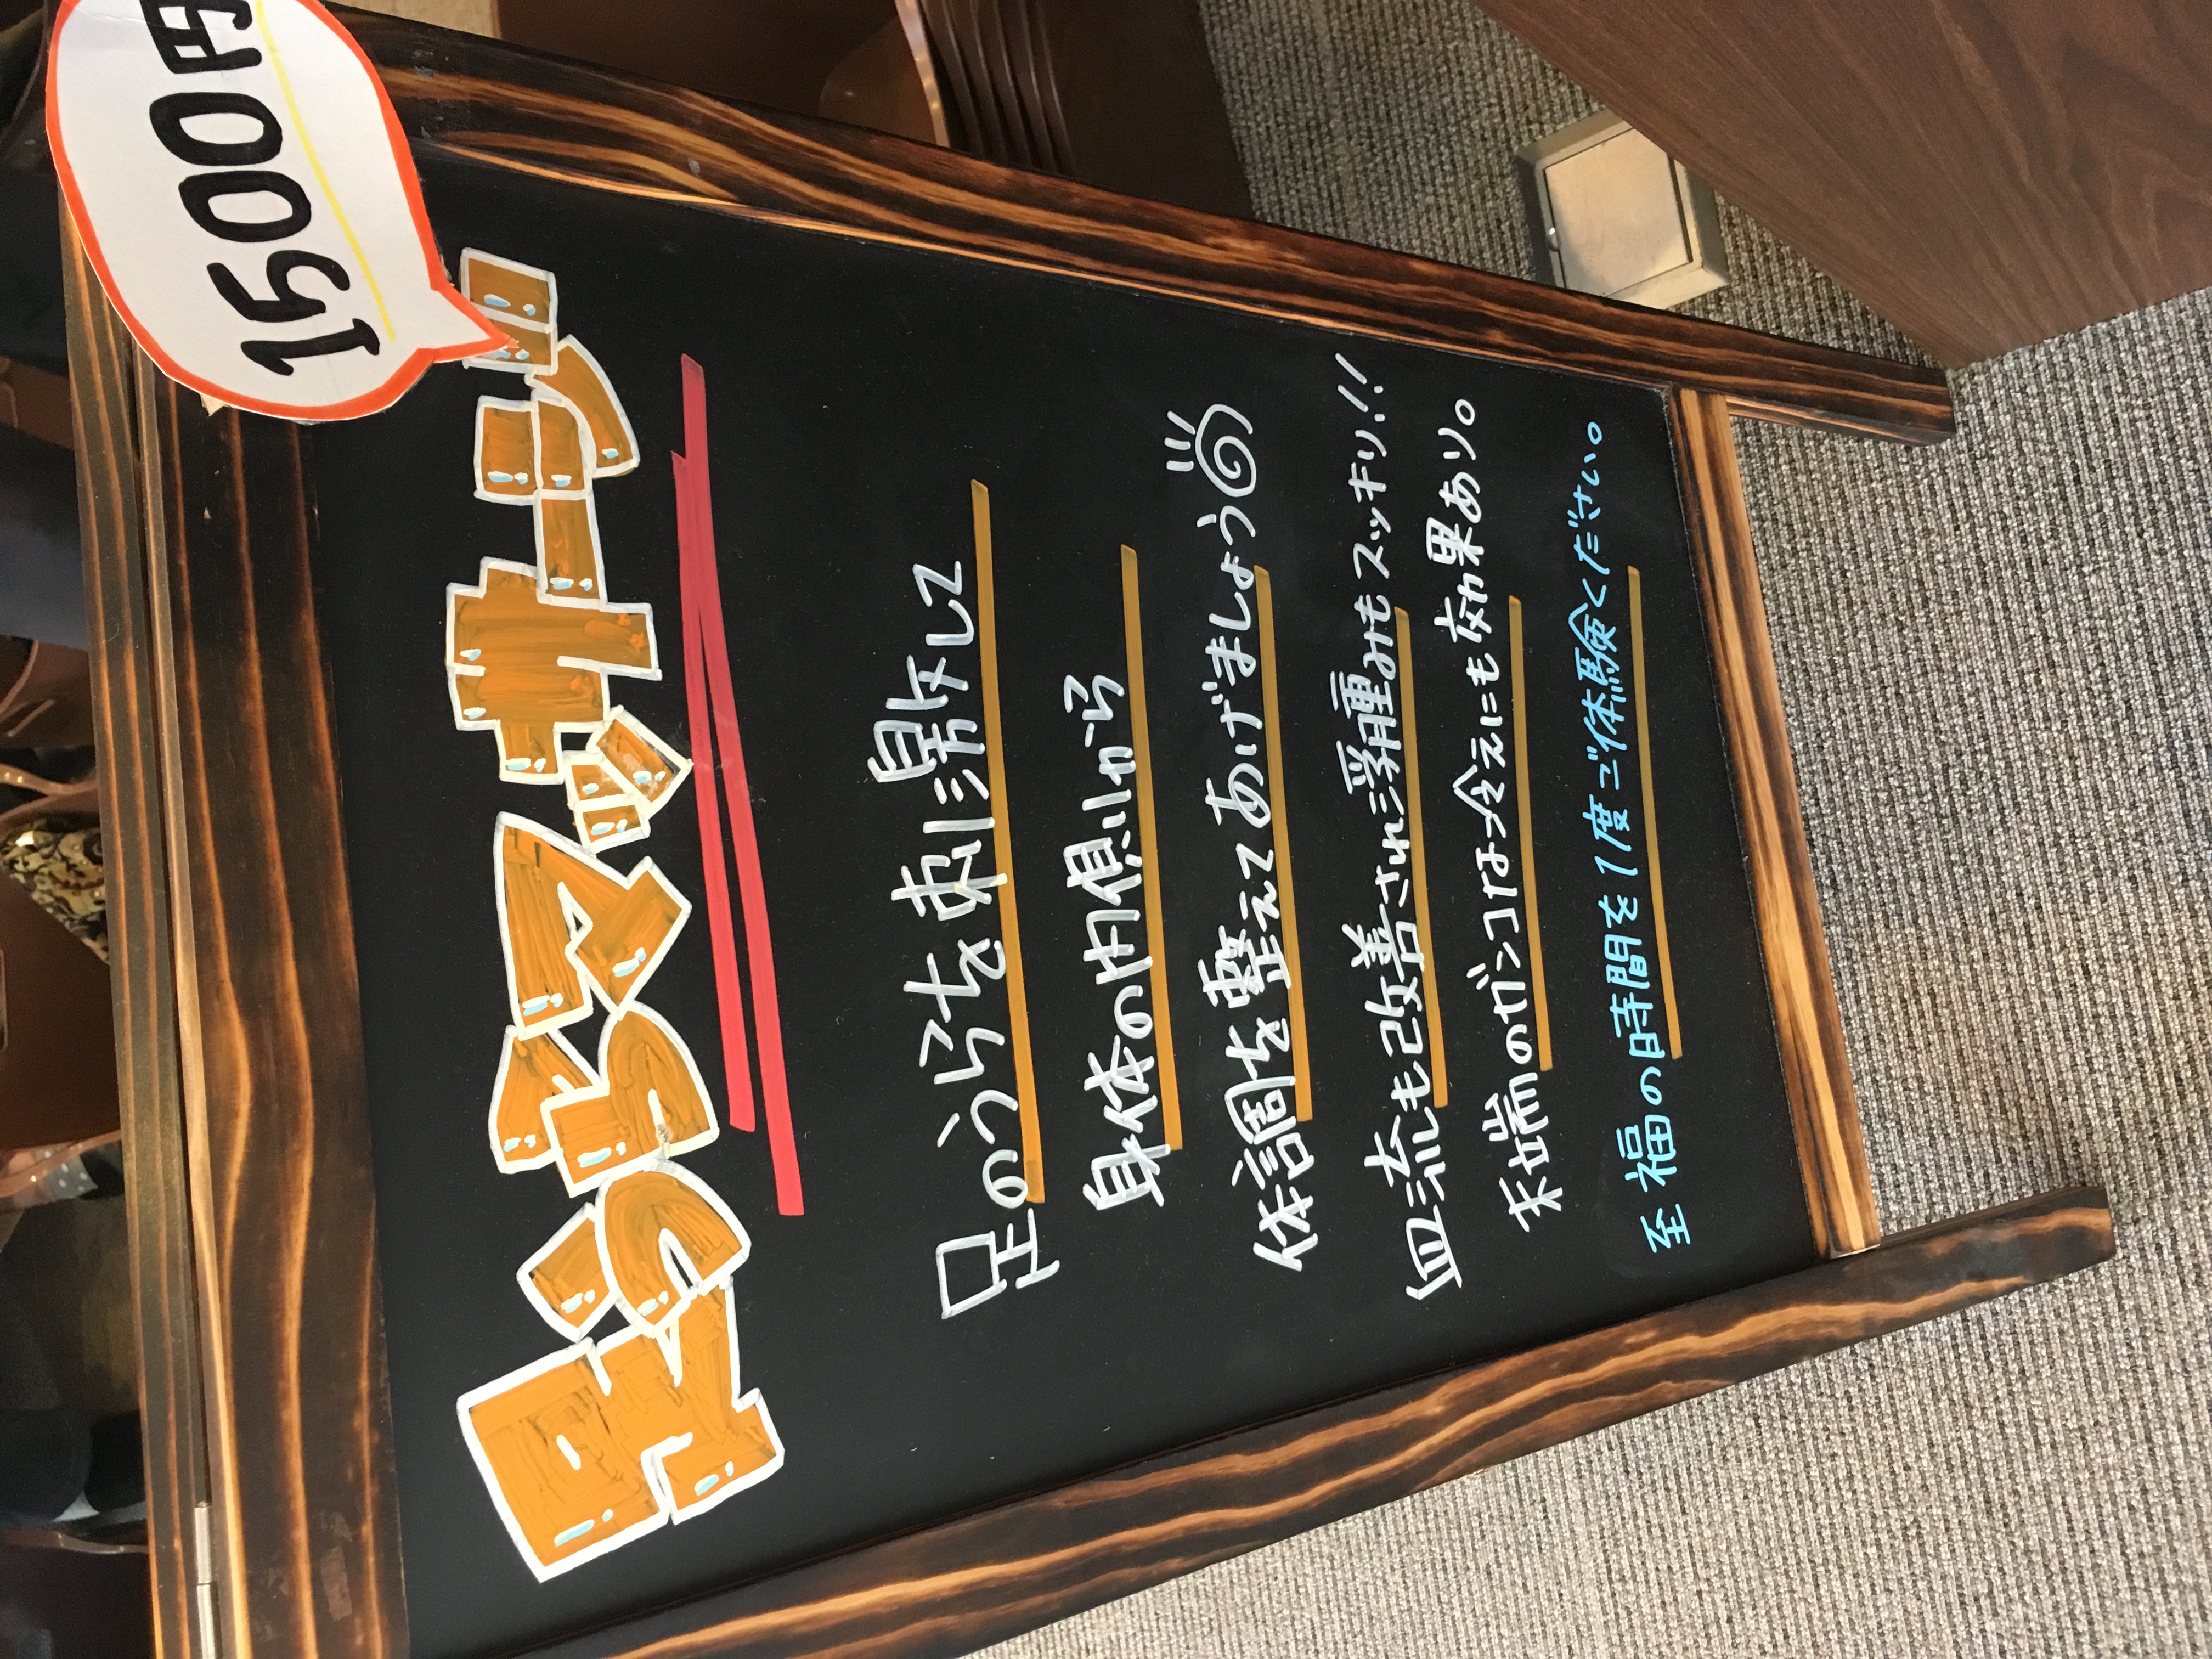 1500円
足うらよもぎ
足のうらを刺激して
身体の内側から
体調を整えてあげましょう
血流も改善され浮腫みもスッキリ!!
末端のガンコなつめ冷えにも効果あり。
至福の時間を1度ご体験ください。